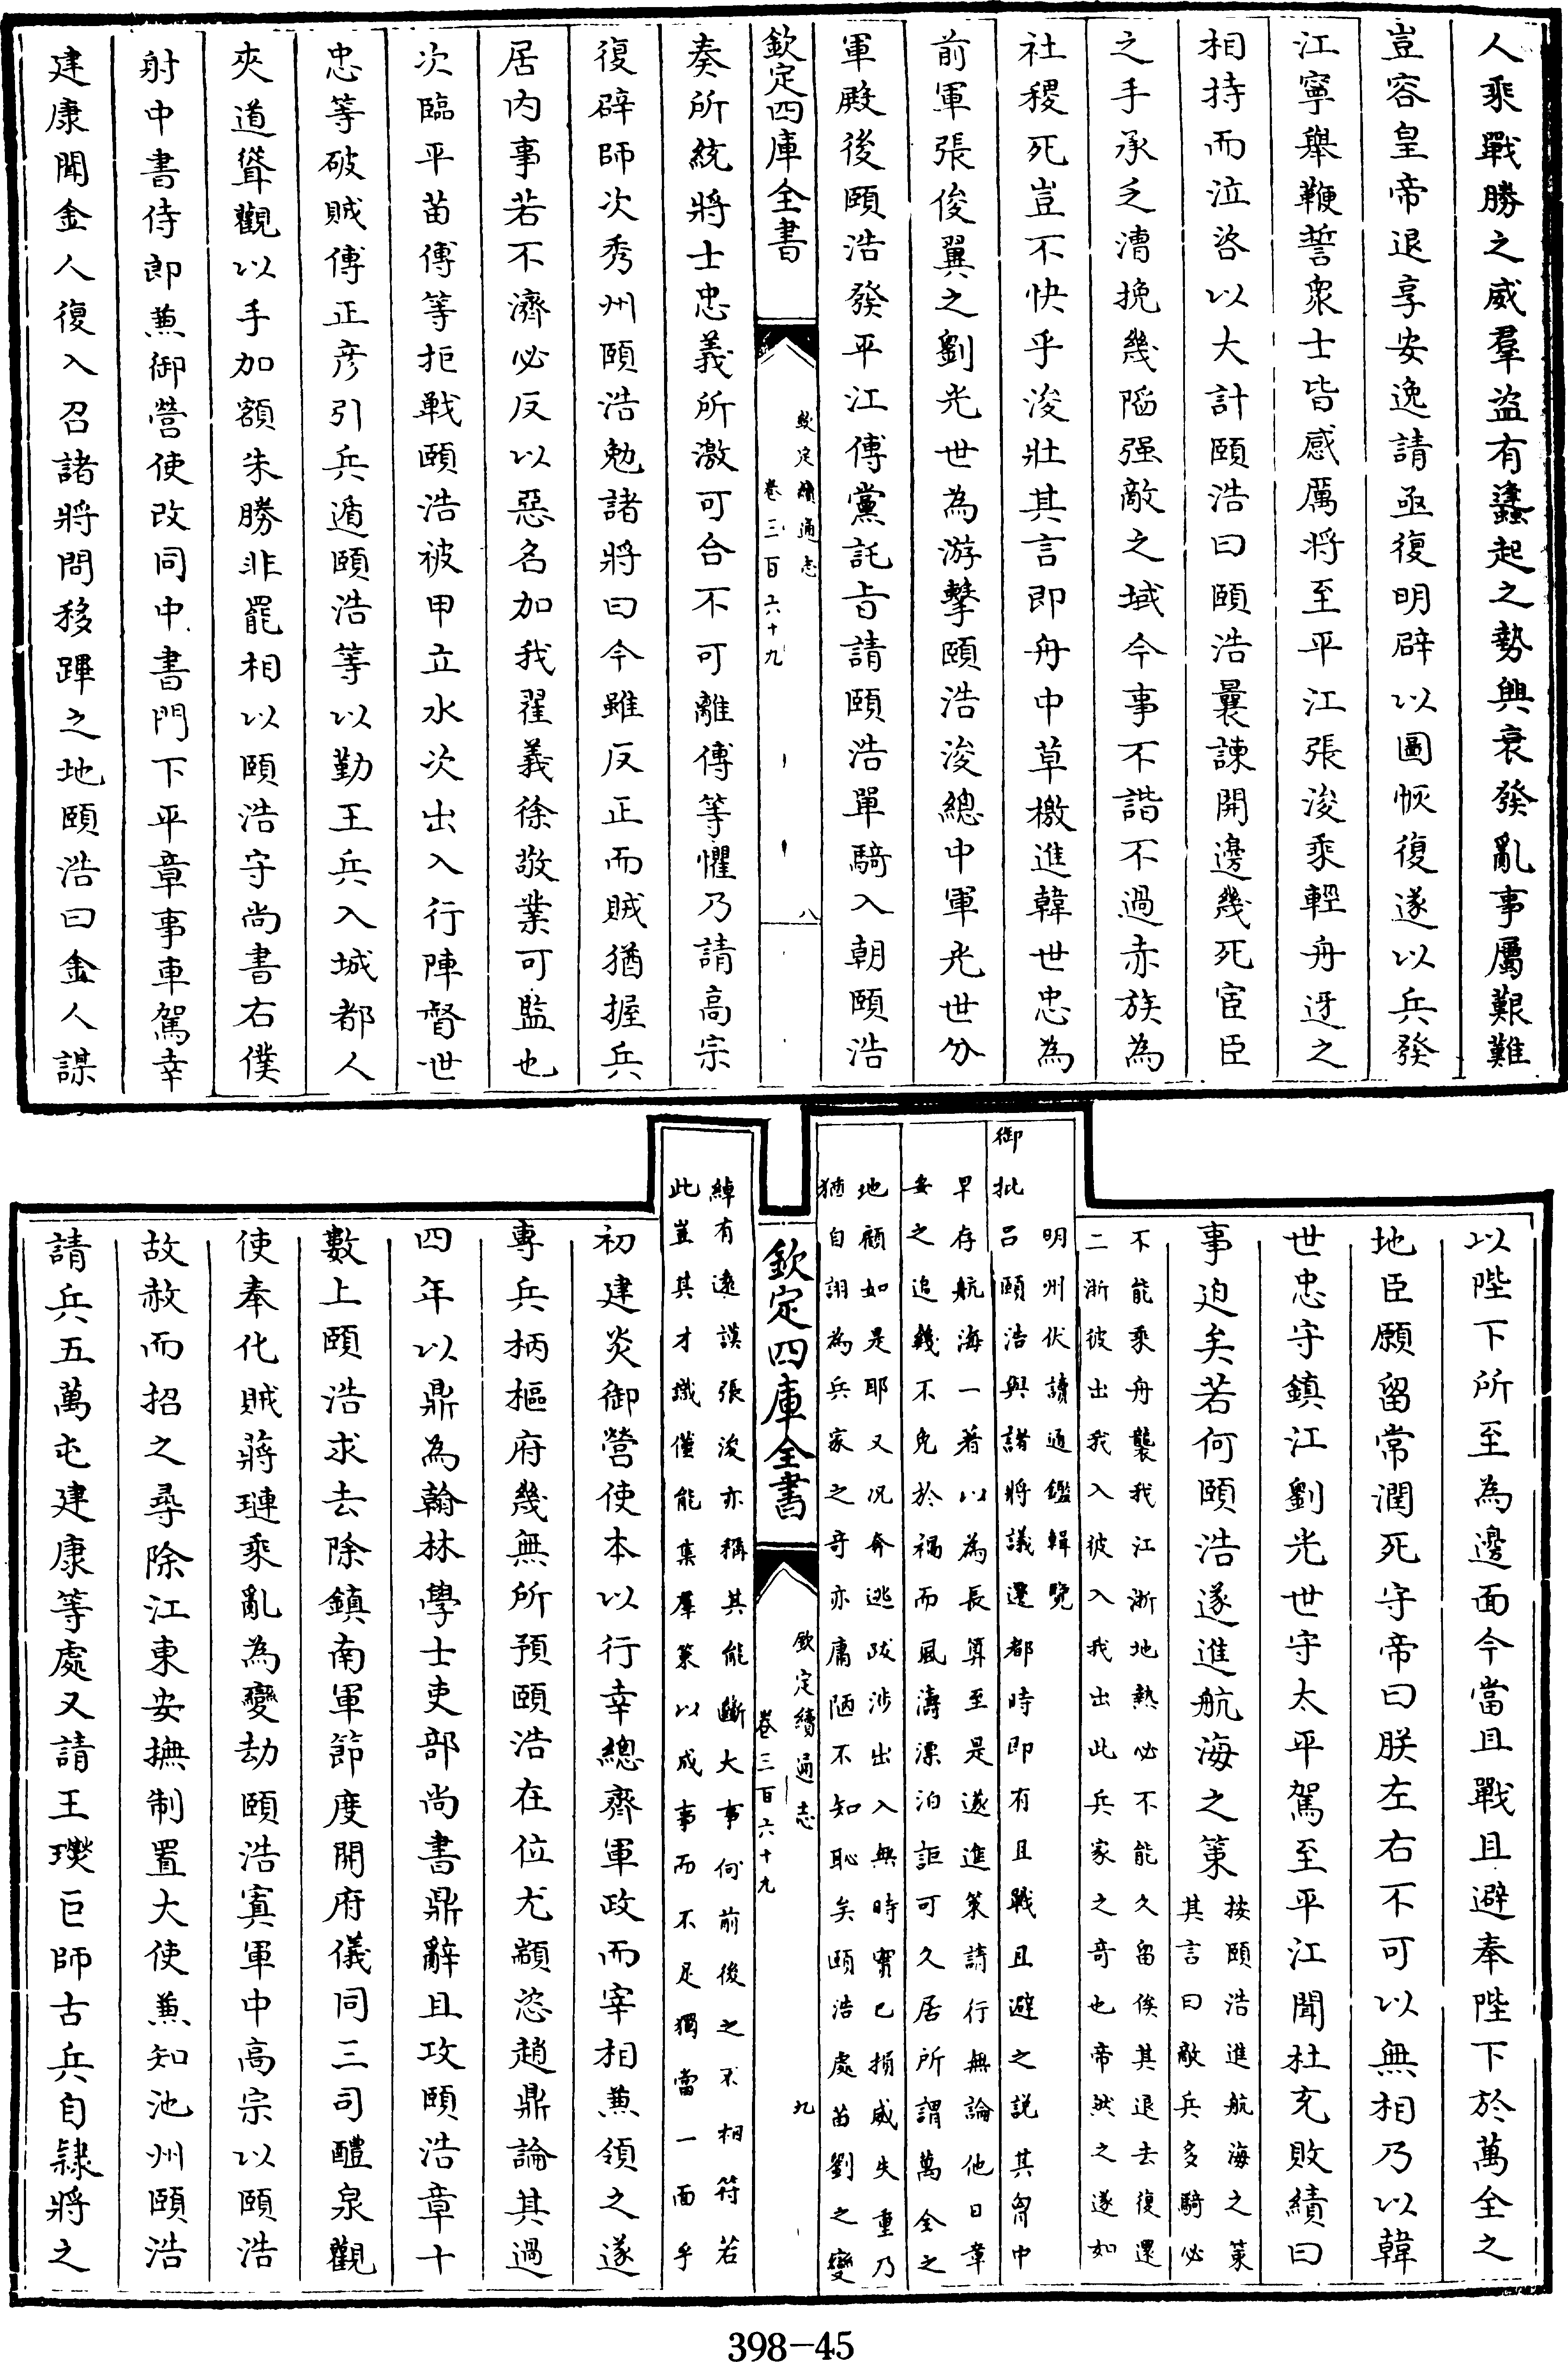 人乘戰勝之威羣盜有蠭起之勢興衰發亂事屬艱難
豈容皇帝退享安逸請亟復明辟以圖恢復遂以兵發
江寧舉鞭誓衆士皆感厲將至平江張浚乘輕舟迓之
相持而泣咨以大計頤浩曰頤浩曩諫開邊幾死宦臣
之手承乏漕挽幾陷强敵之域今事不諧不過赤族為
社稷死豈不快乎浚壯其言即舟中草檄進韓世忠為
前軍張俊翼之劉光世為游擊頤浩浚總中軍光世分
軍殿後頤浩發平江傅黨託㫖請頤浩單騎入朝頤浩
欽定四庫全書
欽定續通志
卷三百六十九
八
奏所統將士忠義所激可合不可離傅等懼乃請高宗
復辟師次秀州頤浩勉諸將曰今雖反正而賊猶握兵
居内事若不濟必反以惡名加我翟義徐敬業可監也
次臨平苗傅等拒戰頤浩被甲立水次出入行陣督世
忠等破賊傅正彦引兵遁頤浩等以勤王兵入城都人
夾道聳觀以手加額朱勝非罷相以頤浩守尚書右僕
射中書侍郎兼御營使改同中書門下平章事車駕幸
建康聞金人復入召諸將問移蹕之地頤浩曰金人謀
以陛下所至為邊面今當且戰且避奉陛下於萬全之
地臣願留常潤死守帝曰朕左右不可以無相乃以韓
世忠守鎮江劉光世守太平駕至平江聞杜充敗績曰
事迫矣若何頤浩遂進航海之策
按頤浩進航海之策
其言曰敵兵多騎必
不能乘舟襲我江浙地熱必不能久留俟其退去復還
二浙彼出我入彼入我出此兵家之竒也帝然之遂如
明州伏讀通鑑輯覽
御批吕頤浩與諸將議遷都時即有且戰且避之説其胷中
早存航海一著以為長算至是遂進策請行無論他日章
安之追幾不免於禍而風濤漂泊詎可久居所謂萬全之
地顧如是耶又况奔逃跋涉出入無時實已損威失重乃
猶自詡為兵家之竒亦庸陋不知恥矣頤浩處苗劉之變
綽有遠謨張浚亦稱其能斷大事何前後之不相符若
此豈其才識僅能集羣策以成事而不足獨當一面乎
欽定四庫全書
欽定續通志
卷三百六十九
九
初建炎御營使本以行幸總齊軍政而宰相兼領之遂
專兵柄樞府幾無所預頤浩在位尤顓恣趙鼎論其過
四年以鼎為翰林學士吏部尚書鼎辭且攻頤浩章十
數上頤浩求去除鎮南軍節度開府儀同三司醴泉觀
使奉化賊蔣璉乘亂為變劫頤浩寘軍中高宗以頤浩
故赦而招之尋除江東安撫制置大使兼知池州頤浩
請兵五萬屯建康等處又請王𤫉巨師古兵自隸將之
398-45